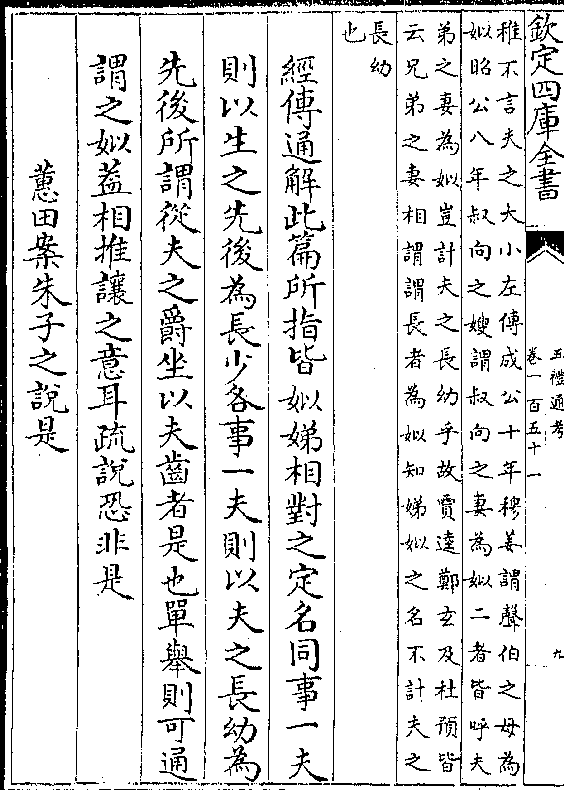 欽定四庫全書
五禮通考
卷一百五十一
九
稚不言夫之大小左傳成公十年穆姜謂聲伯之母為
姒昭公八年叔向之嫂謂叔向之妻為姒二者皆呼夫
弟之妻為姒豈計夫之長幼乎故賈逵鄭玄及杜預皆
云兄弟之妻相謂謂長者為姒知娣姒之名不計夫之
長幼
也
經傳通解此篇所指皆姒娣相對之定名同事一夫
則以生之先後為長少各事一夫則以夫之長幼為
先後所謂從夫之爵坐以夫齒者是也單舉則可通
謂之姒葢相推讓之意耳疏說恐非是
蕙田案朱子之說是